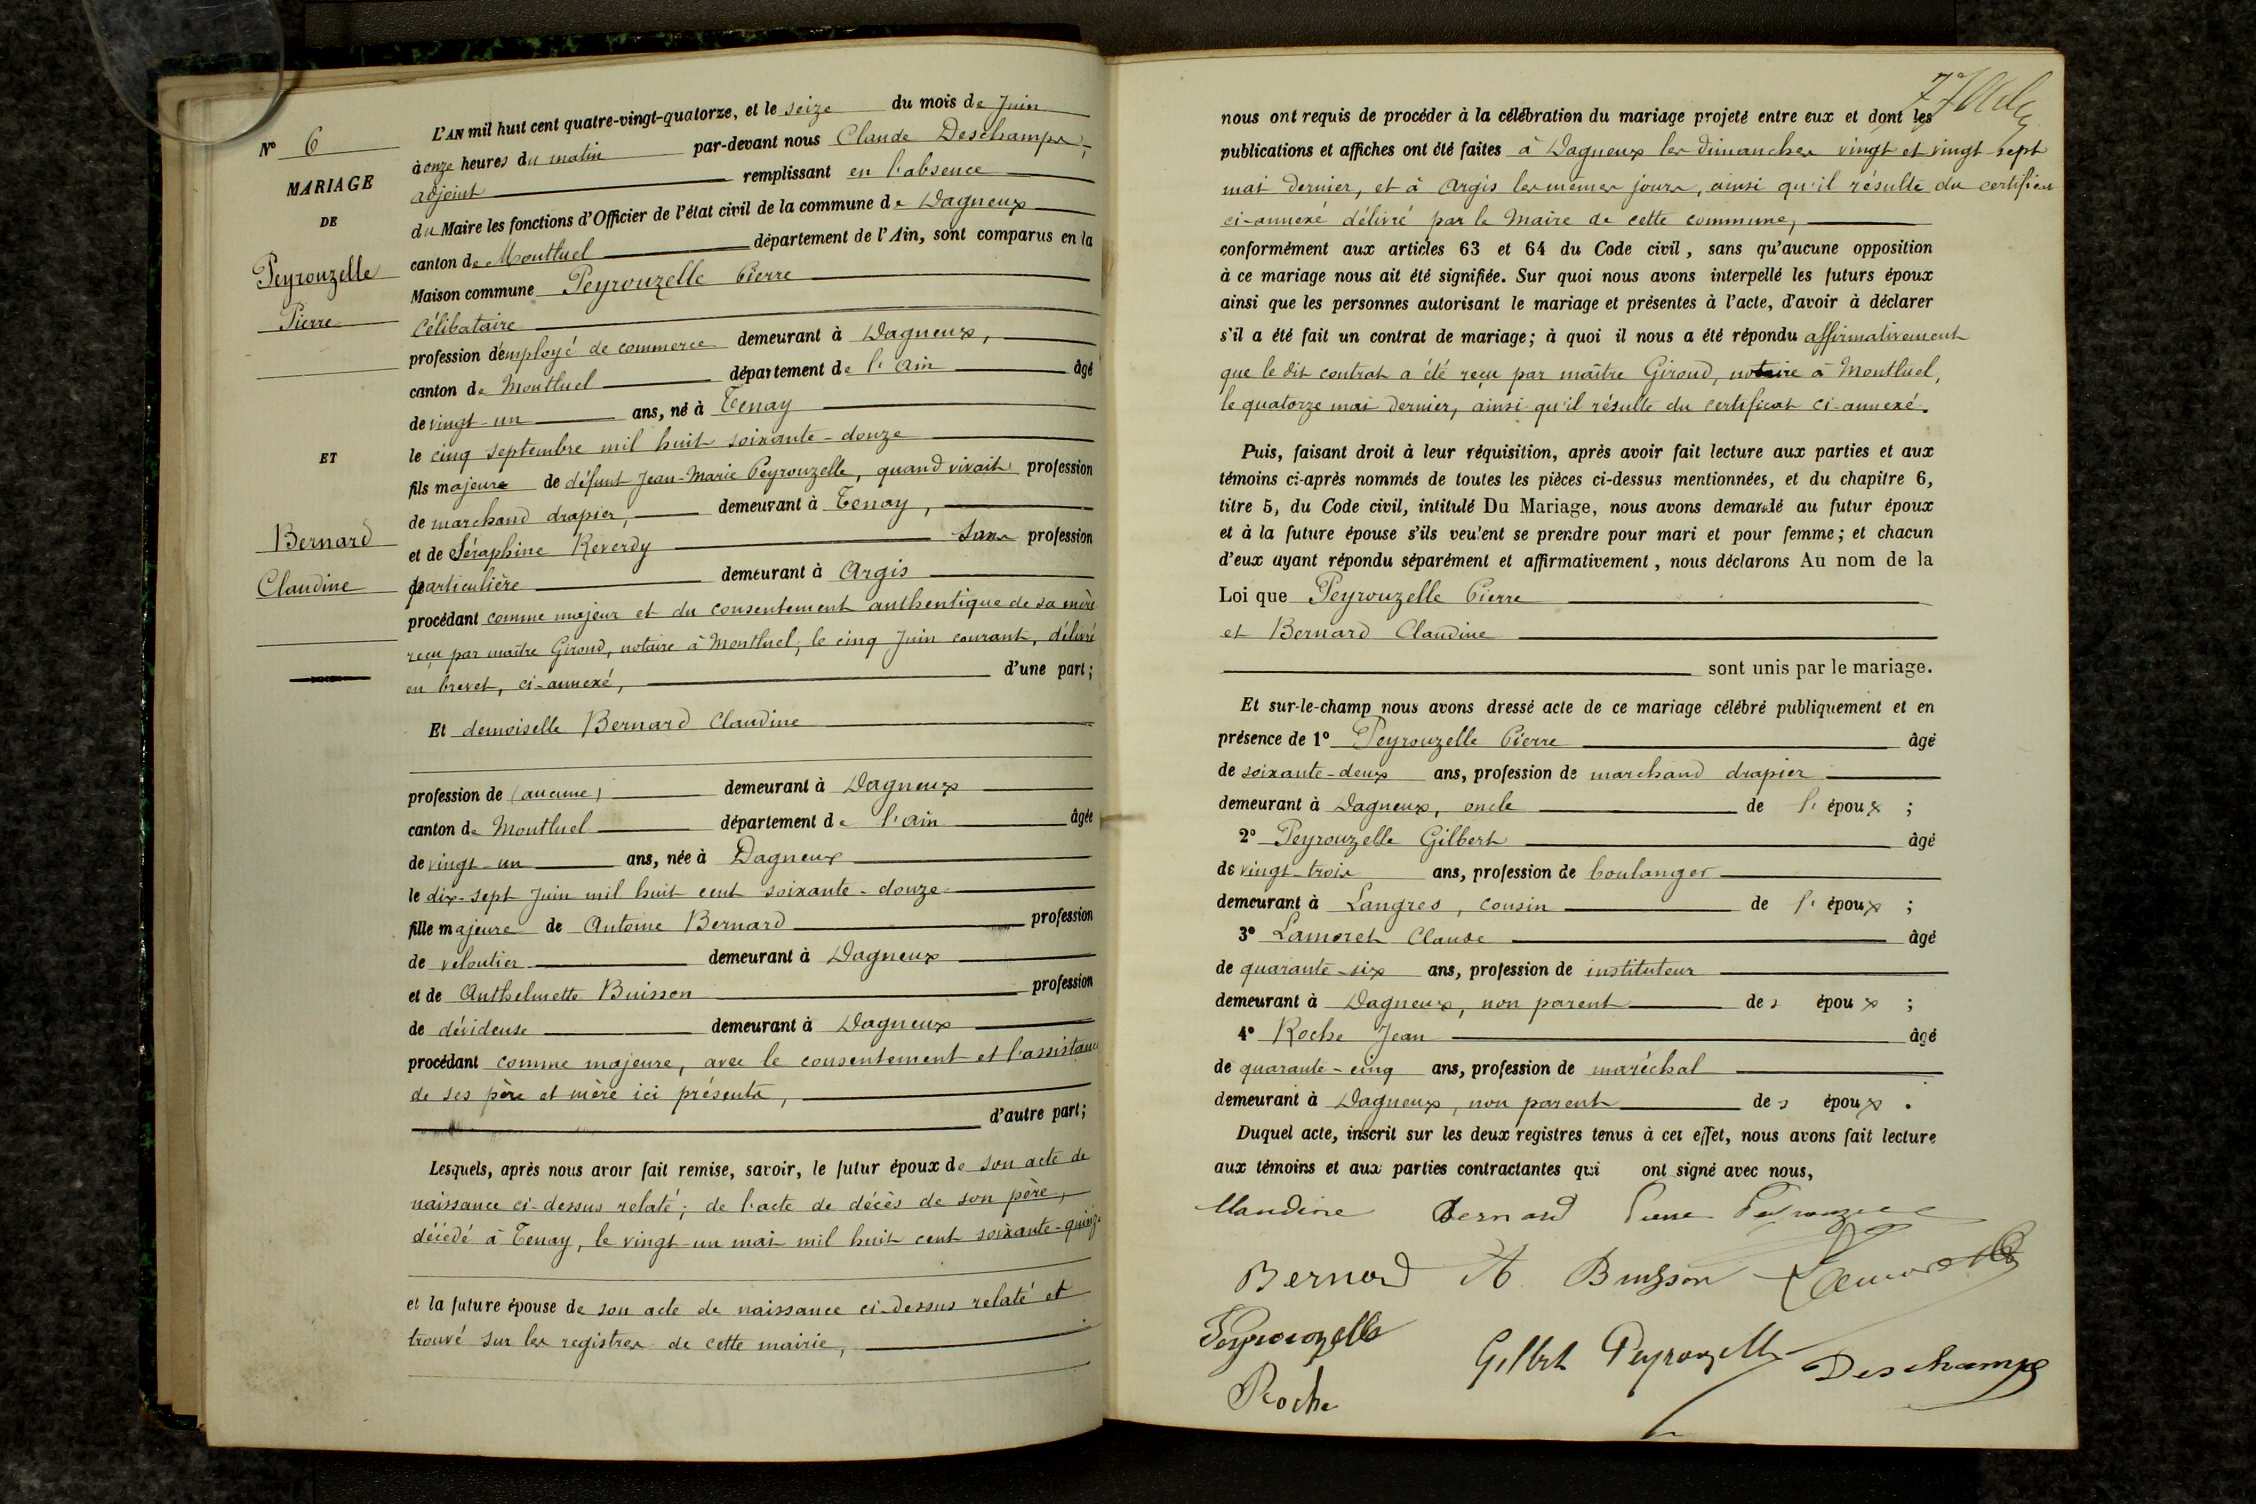 N° 6
MARIAGE
DE
Peyrouzelle
Pierre
ET
Bernard
Claudine
L'AN mil huit cent quatre-vingt-quatorze, et le seize du mois de Juin
à onze heures du matin par-devant nous Claude Deschamps,
adjoint remplissant en l'absence
du Maire les fonctions d'Officier de l'état civil de la commune de Dagneux
canton de Montluel département de l'Ain, sont comparus en la
Maison commune Peyrouzelle Pierre
Célibataire
profession d'employé de commerce demeurant à Dagneux,
canton de Montluel département de l'Ain âgé
de vingt-un ans, né à Tenay
le cinq septembre mil huit soixante-douze
fils majeur de défunt Jean-Marie Peyrouzelle, quand vivait profession
de marchand drapier, demeurant à Tenay,
et de Séraphine Reverdy sans profession
particulière demeurant à Argis
procédant comme majeur et du consentement authentique de sa mère
reçu par maître Giroud, notaire à Montluel, le cinq Juin courant, délivré
en brevet, ci-annexé, d'une part;
Et demoiselle Bernard Claudine
profession de (aucune) demeurant à Dagneux
canton de Montluel département de l'Ain âgée
de vingt-un ans, née à Dagneux
le dix-sept Juin mil huit cent soixante-douze
fille majeure de Antoine Bernard profession
de veloutier demeurant à Dagneux
et de Anthelmette Buisson profession
de dévideuse demeurant à Dagneux
procédant comme majeure, avec le consentement et l'assistance
de ses père et mère ici présents,
d'autre part;
Lesquels, après nous avoir fait remise, savoir, le futur époux de son acte de
naissance ci-dessus relaté; de l'acte de décès de son père,
décédé à Tenay, le vingt-un mai mil huit cent soixante-quinze
et la future épouse de son acte de naissance ci-dessus relaté et
trouvé sur les registres de cette mairie,
nous ont requis de procéder à la célébration du mariage projeté entre eux et dont les
publications et affiches ont été faites à Dagneux les dimanches vingt et vingt-sept
mai dernier, et à Argis les mêmes jours, ainsi qu'il résulte du certificat
ci-annexé délivré par le Maire de cette commune,
conformément aux articles 63 et 64 du Code civil, sans qu'aucune opposition
à ce mariage nous ait été signifiée. Sur quoi nous avons interpellé les futurs époux
ainsi que les personnes autorisant le mariage et présentes à l'acte, d'avoir à déclarer
s'il a été fait un contrat de mariage; à quoi il nous a été répondu affirmativement
que le dit contrat a été reçu par maître Giroud, notaire à Montluel,
le quatorze mai dernier, ainsi qu'il résulte du certificat ci-annexé.
Puis, faisant droit à leur réquisition, après avoir fait lecture aux parties et aux
témoins ci-après nommés de toutes les pièces ci-dessus mentionnées, et du chapitre 6,
titre 5, du Code civil, intitulé Du Mariage, nous avons demandé au futur époux
et à la future épouse s'ils veulent se prendre pour mari et pour femme; et chacun
d'eux ayant répondu séparément et affirmativement, nous déclarons Au nom de la
Loi que Peyrouzelle Pierre
et Bernard Claudine
sont unis par le mariage.
Et sur-le-champ nous avons dressé acte de ce mariage célébré publiquement et en
présence de 1° Peyrouzelle Pierre âgé
de soixante-deux ans, profession de marchand drapier
demeurant à Dagneux, oncle de l'époux;
2° Peyrouzelle Gilbert âgé
de vingt-trois ans, profession de boulanger
demeurant à Langres, cousin de l'époux;
3° Lamoret Claude âgé
de quarante-six ans, profession de instituteur
demeurant à Dagneux, non parent des époux;
4° Roche Jean âgé
de quarante-cinq ans, profession de maréchal
demeurant à Dagneux, non parent des époux.
Duquel acte, inscrit sur les deux registres tenus à cet effet, nous avons fait lecture
aux témoins et aux parties contractantes qui ont signé avec nous,
Claudine Bernard Pierre Peyrouzelle
Bernard A Buisson Lamoret
Peyrouzelle
Gilbert Peyrouzelle Deschamps
Roche